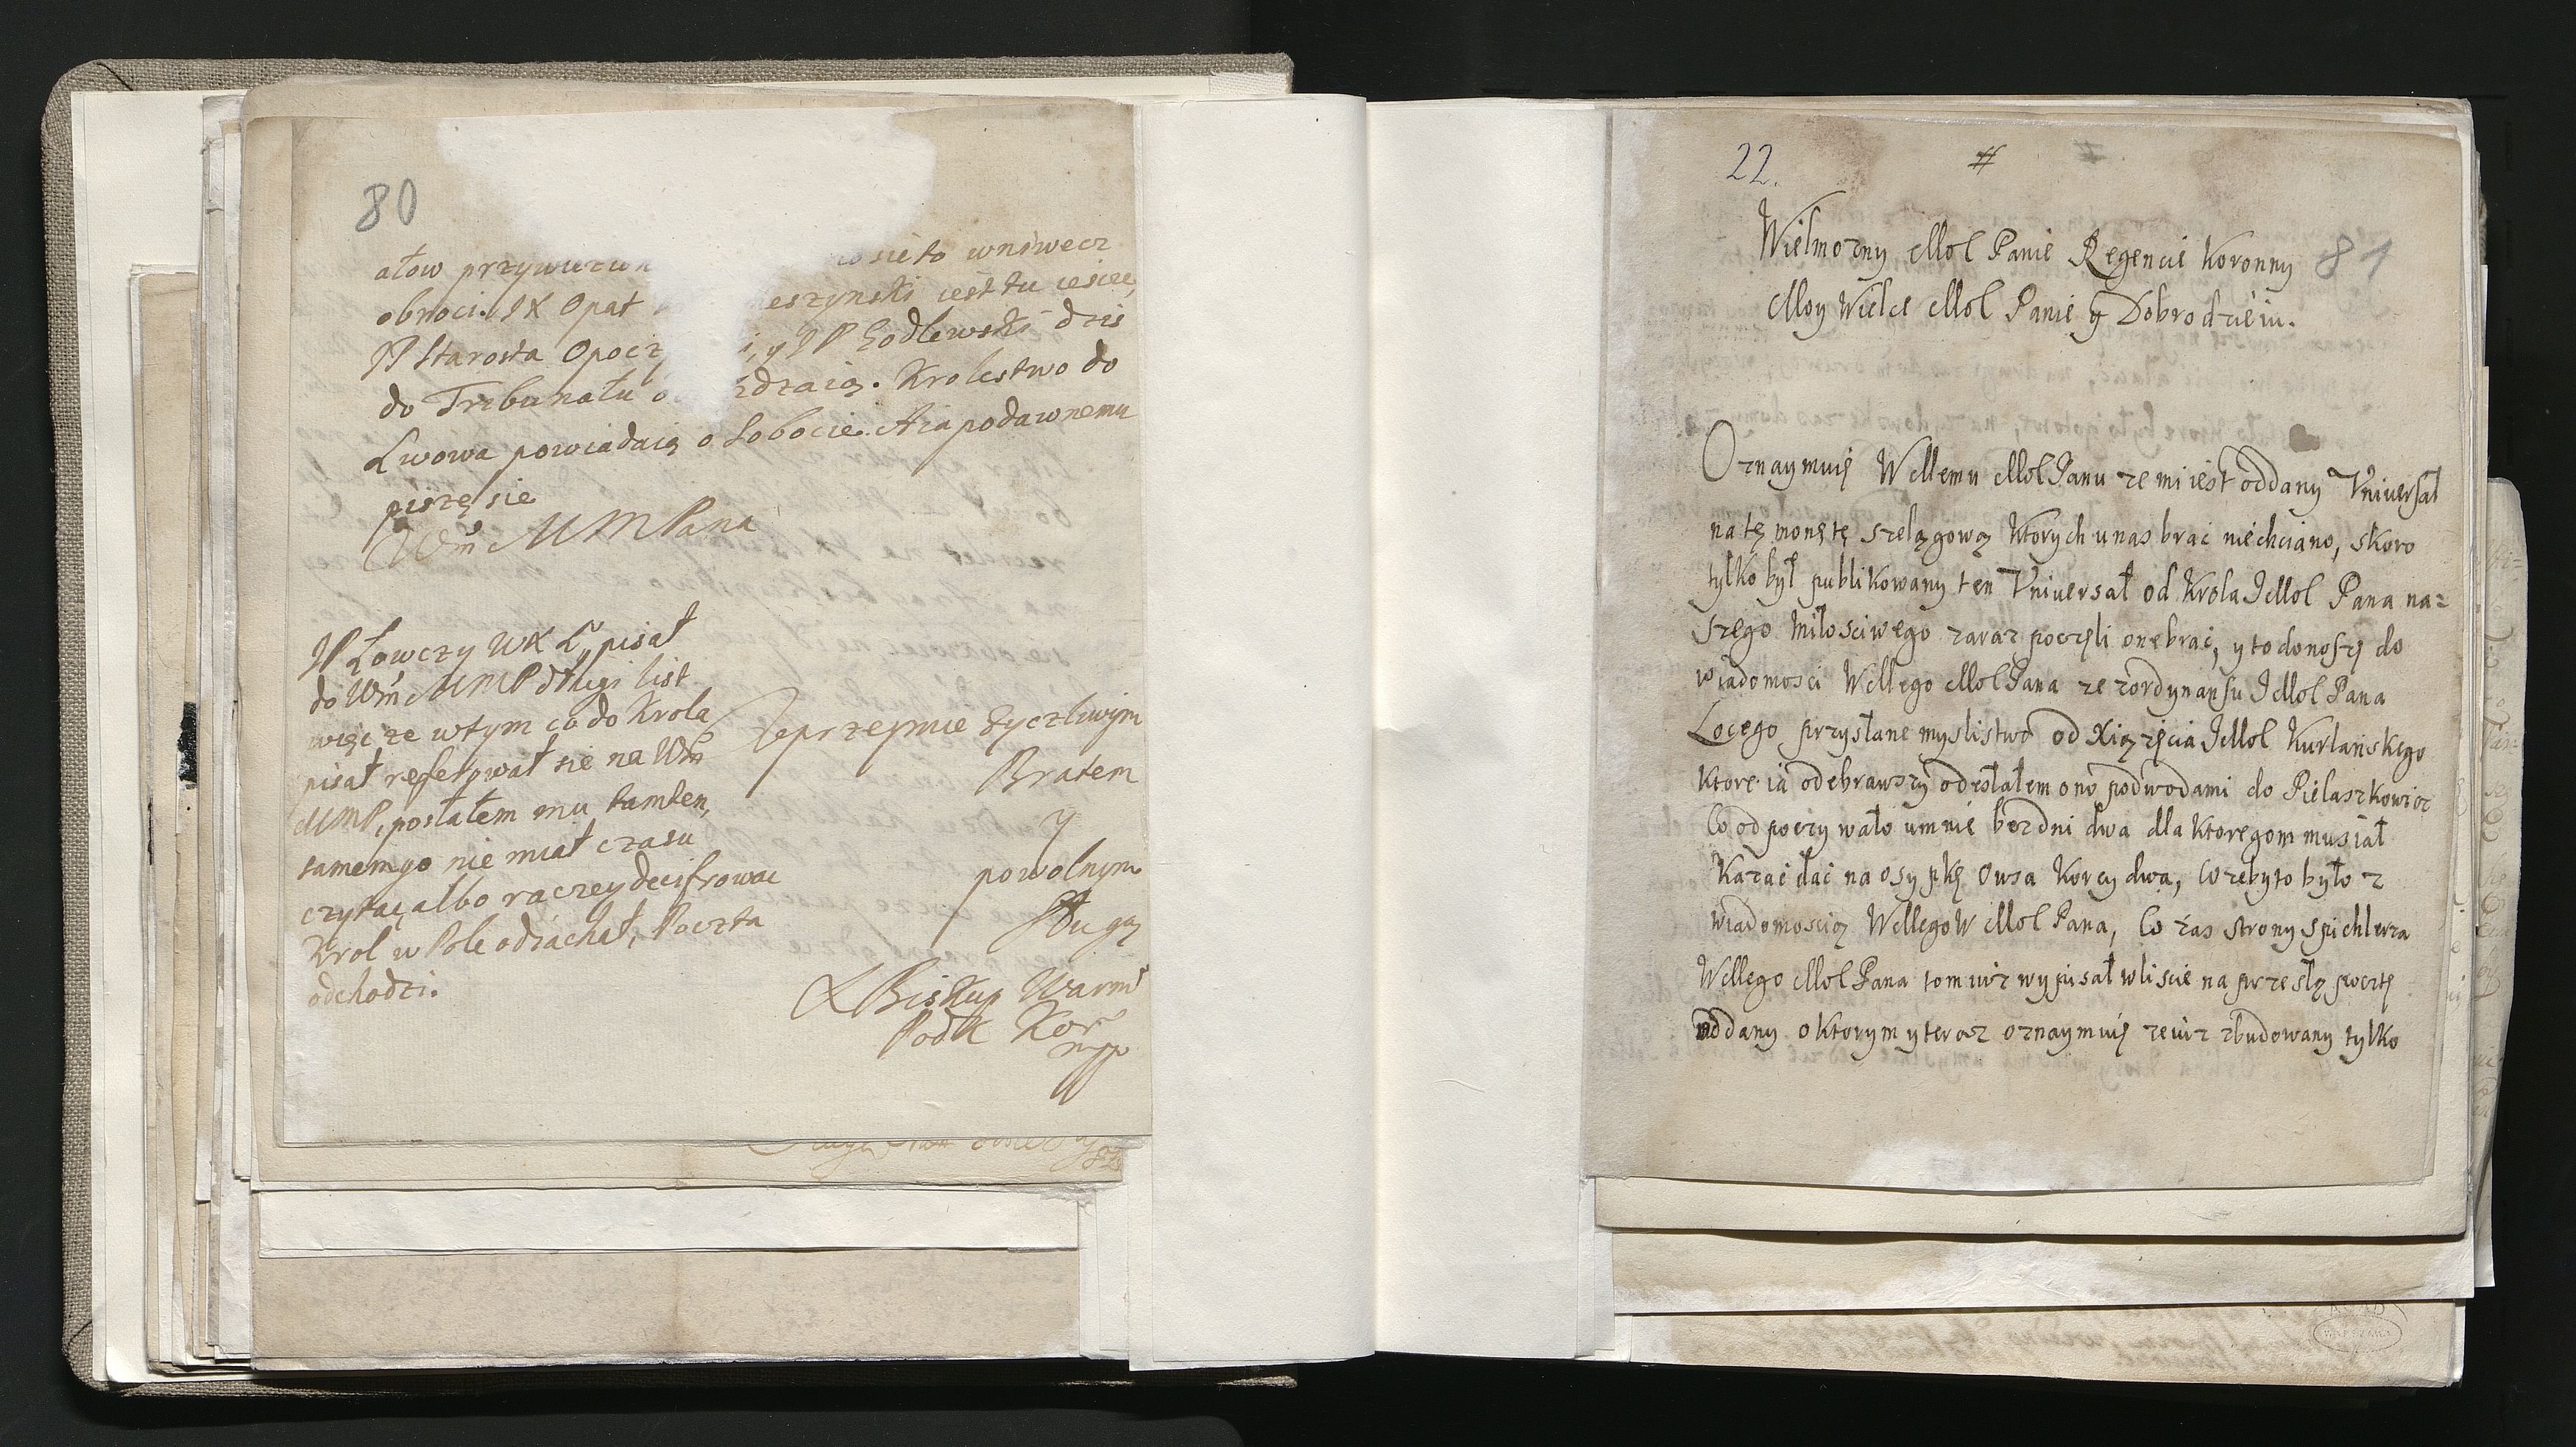 80
ałow przywiezio nosię to wniwecz
obroci. JX Opat eszynski iest tu ieszcze,
JP Starosta Opocz i, y JP Godlewski dzis
do Trzbunału o zdzaią. Krolestwo do
Lwowa powiadaią o Sobocie. Aia podawnemu
piszę się
Wm MMPana
JP Łowczy WXL, pisał
do Wm MMP długi list
więc ze wtym co do Krola
pisał referował się na Wm
MMP, posłałem mu tamten,
samem go nie miał czasu
czytac, albo raczey decifrowac
Krol w Pole odiachał, Poczta
odchodzi.
Uprzejmie życzliwym
Bratem
y
powolnym
Sługą
Biskup Warm
PodK Kor
mpp
22.
#
81
Wielmozny Mol Panie Regencie Koronny
Moy Wielce Mol Panie y Dobrodzieiu.
Oznaymuię WMemu MolPanu ze mi iest oddany Vniversał
na tę monętę szelągową ktorych u nas brac niechciano, skoro
tylko był publikowany ten Vniversał od Krola JMol Pana na=
szego Miłosciwego zaraz poczęli one brac, y to donoszę do
wiadomosci WMego MolPana ze zordynansu JMol Pana
Locego przysłane myslistwo od Xiązęcia JMol Kurlanskego
ktore ia odebrawszy odesłałem ono podwodami do Pielaszkowic
Co odpoczywało umnie bez dni dwa dla ktoregom musiał
Kazac dac na osypkę Owsa Korcy dwa, Co zeby to było z
wiadomoscią WMegoW Mol Pana, Co zas strony Spichlerza
WMego Mol Pana tom iuz wypisał wliscie na przeszłą pocztę
oddany o ktorym y teraz oznaymuię ze iuz zbudowany tylko